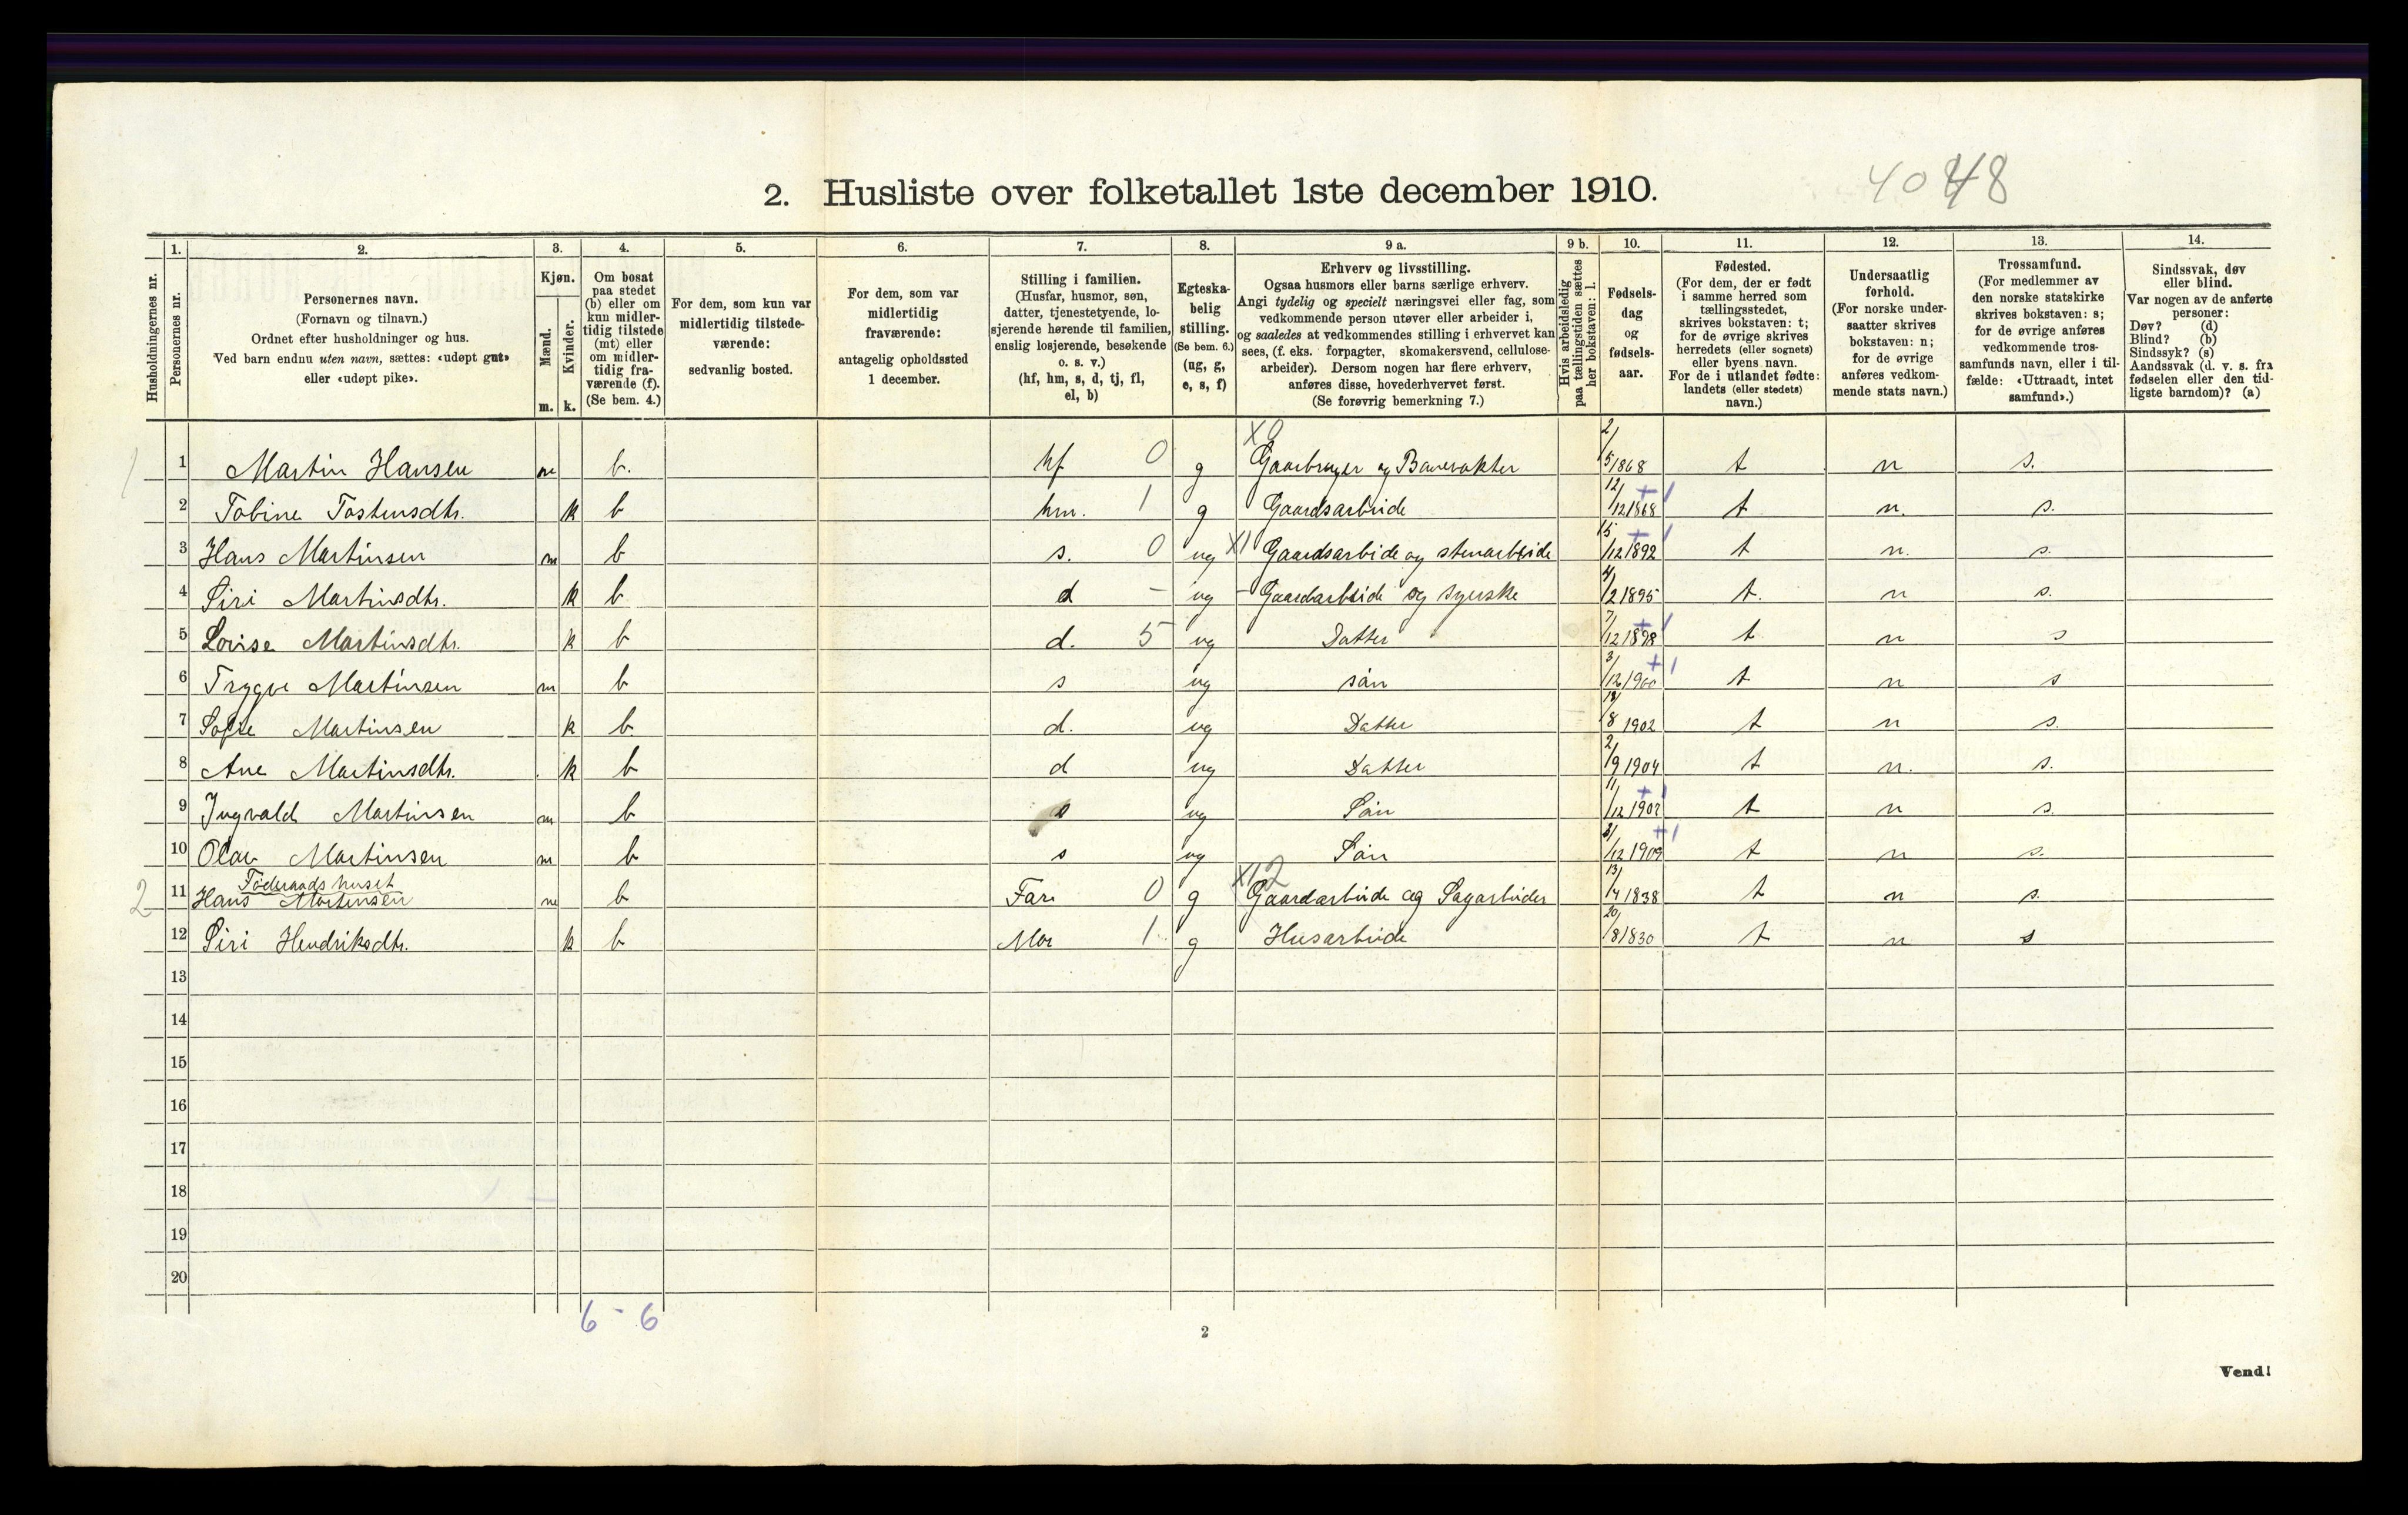 2. Husliste over folketallet 1ste december 1910.
4048
Husholdningernes nr.
1. Personernes nr.
2. Personernes navn. (Fornavn og tilnavn.) Ordnet efter husholdninger og hus. Ved barn endnu uten navn, sættes: «udøpt gut» eller «udøpt pike».
3. Kjøn. Mænd. m. Kvinder. k.
4. Om bosat paa stedet (b) eller om kun midlertidig tilstede (mt) eller om midlertidig fraværende (f). (Se bem. 4.)
5. For dem, som kun var midlertidig tilstedeværende: sedvanlig bosted.
6. For dem, som var midlertidig fraværende: antagelig opholdssted 1 december.
7. Stilling i familien. (Husfar, husmor, søn, datter, tjenestetyende, losjerende hørende til familien, enslig losjerende, besøkende o. s. v.) (hf, hm, s, d, tj, fl, el, b)
8. Egteskabelig stilling. (Se bem. 6.) (ug, g, e, s, f)
9 a. Erhverv og livsstilling. Ogsaa husmors eller barns særlige erhverv. Angi tydelig og specielt næringsvei eller fag, som vedkommende person utøver eller arbeider i, og saaledes at vedkommendes stilling i erhvervet kan sees, (f. eks. forpagter, skomakersvend, cellulosearbeider). Dersom nogen har flere erhverv, anføres disse, hovederhvervet først. (Se forøvrig bemerkning 7.)
9 b. Hvis arbeidsledig paa tællingstiden sættes her bokstaven: l.
10. Fødselsdag og fødselsaar.
11. Fødested. (For dem, der er født i samme herred som tællingsstedet, skrives bokstaven: t; for de øvrige skrives herredets (eller sognets) eller byens navn. For de i utlandet fødte: landets (eller stedets) navn.)
12. Undersaatlig forhold. (For norske undersaatter skrives bokstaven: n; for de øvrige anføres vedkommende stats navn.)
13. Trossamfund. (For medlemmer av den norske statskirke skrives bokstaven: s; for de øvrige anføres vedkommende trossamfunds navn, eller i tilfælde: «Uttraadt, intet samfund».)
14. Sindssvak, døv eller blind. Var nogen av de anførte personer: Døv? (d) Blind? (b) Sindssyk? (s) Aandssvak (d. v. s. fra fødselen eller den tidligste barndom)? (a)
1 1 Martin Hansen m b. hf 0 g X0 Gaarbruger og Banevakter 2/5 1868 t n s.
2 Tobine Tostensdtr. k b hm. 1 g Gaardsarbeide 12/12 1868 t n. s.
3 Hans Martinsen m b s. 0 ug X1 Gaardsarbeide og stenarbeide 15/12 1892 t n. s.
4 Siri Martinsdtr. k b d - ug - Gaardarbeide og syerske 4/2 1895 t. n s.
5 Lovise Martinsdtr. k b d. 5 ug Datter 7/12 1898 t n s
6 Trygve Martinsen m b s ug søn 3/12 1900 t n s
7 Sofie Martinsen k b d. ug Datter /8 1902 t n s.
8 Ane Martinsdtr. k b d ug Datter 2/9 1904 t n. s.
9 Ingvald Martinsen m b s ug Søn 11/12 t n s.
10 Olav Martinsen m b s ug Søn /12 1909 t n s.
Föderaads huset
2 11 Hans Martinsen m b Far 0 g X12 Gaardarbeide og Sagarbeider 13/4 1838 t n s.
12 Siri Hendriksdtr. k b Mor 1 g Husarbeide 20/8 1830 t n s
13
14
15
16
17
18
19
20
6 - 6
2
Vend!